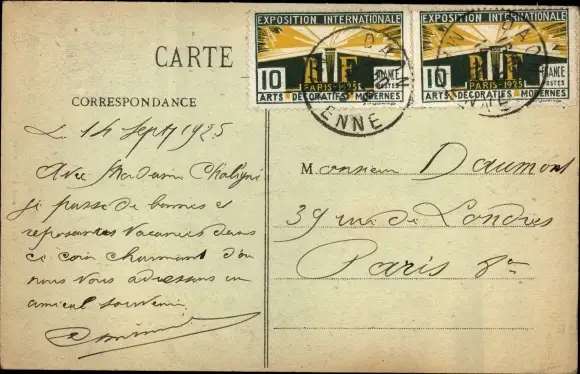 CARTE
EXPOSITION INTERNATIONALE
10
RF
FRANCE
POSTES
PARIS-1925
ARTS DÉCORATIFS MODERNES
EXPOSITION INTERNATIONALE
10
RF
FRANCE
POSTES
PARIS-1925
ARTS DÉCORATIFS MODERNES
ENNE
CORRESPONDANCE
Le 14 Sept 1925
Avec Madame
je passe de bonnes et
reposantes vacances dans
ce coin charmant d'où
nous vous adressons un
amical souvenir
Monsieur Daumont
39 rue de Londres
Paris